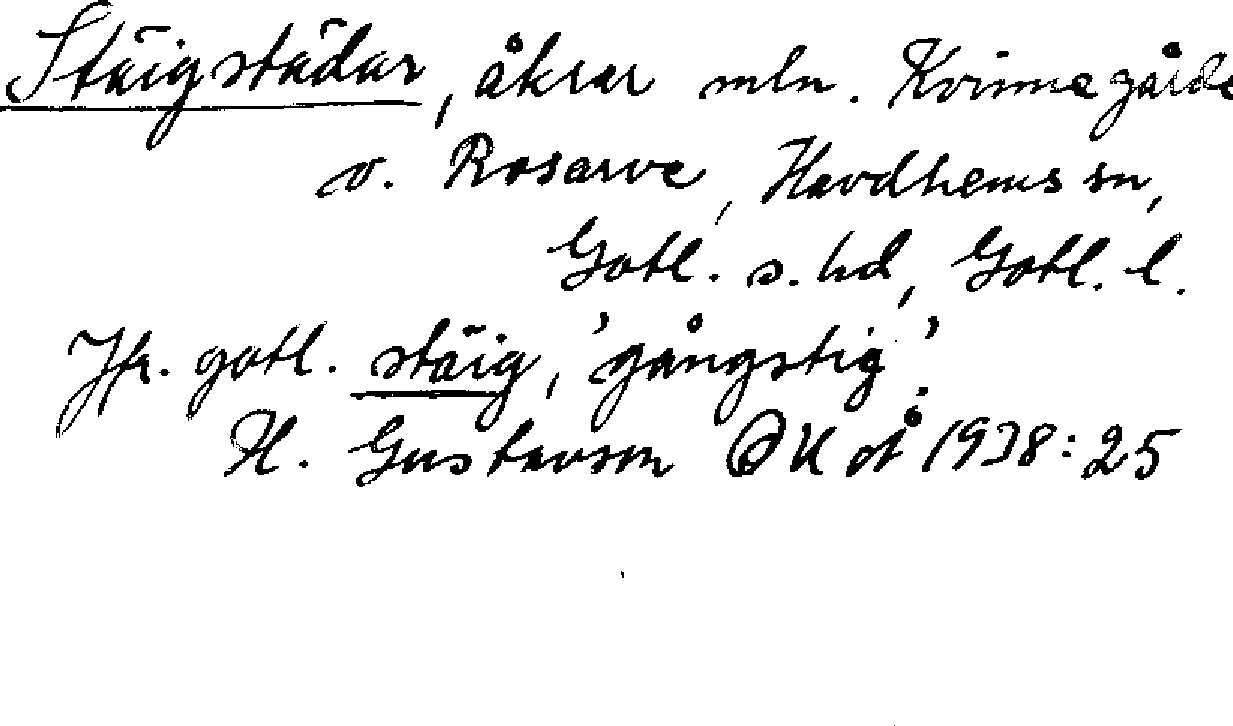 Stäigstädar, åkrar mln. Kvinnegårde
o. Rosarve, Havdhems sn,
Gotl. s. hd, Gotl. l.
Jfr. gotl. stäig, 'gångstig'.
H. Gustavson 1938:25